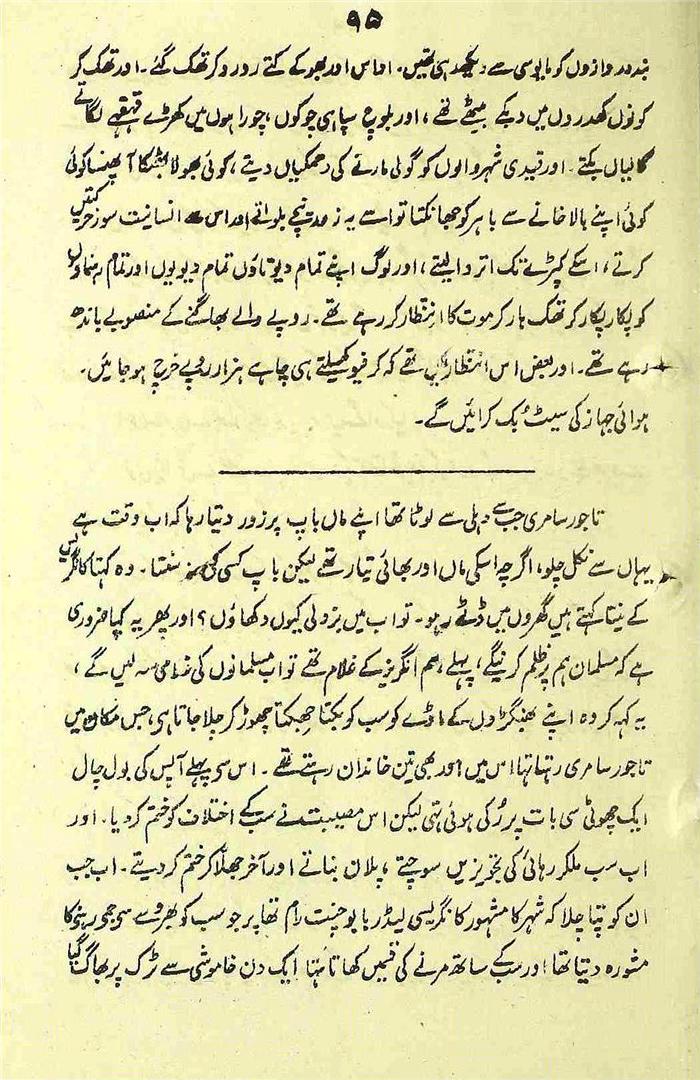 ۹۵
بند دروازوں کو مایوسی سے دیکھ رہی تھیں۔ اداس اور بھوکے کتے رو رو کر تھک گئے۔ اور تھک کر
کونوں کھدروں میں دبکے بیٹھے تھے، اور بلوچ سپاہی چوکوں، چوراہوں میں کھڑے قہقہے لگاتے
گالیاں بکتے۔ اور قیدی شہر والوں کو گولی مارنے کی دھمکیاں دیتے، کوئی بھولا بھٹکا آ پھنسا کوئی
کوئی اپنے بالا خانے سے باہر کو جھانکتا تو اسے یہ زور نیچے بلواتے اور اس سے انسانیت سوز حرکتیں
کرتے، اسکے کپڑے تک اتروا لیتے، اور لوگ اپنے تمام دیوتاؤں تمام دیویوں اور تمام رہنماؤں
کو پکار پکار کر تھک ہار کر موت کا انتظار کر رہے تھے۔ روپے والے بھاگنے کے منصوبے باندھ
رہے تھے۔ اور بعض اس انتظار میں تھے کہ کرفیو کھلتے ہی چاہے ہزار روپے خرچ ہو جائیں۔
ہوائی جہاز کی سیٹ بُک کرائیں گے۔
تاجور سامری جب سے دہلی سے لوٹا تھا اپنے ماں باپ پر زور دیتا رہا کہ اب وقت ہے
یہاں سے نکل چلو، اگرچہ اسکی ماں اور بھائی تیار تھے لیکن باپ کسی کی نہ سنتا۔ وہ کہتا کانگریس
کے نیتا کہتے ہیں گھروں میں ڈٹے رہو۔ تو اب میں بزدلی کیوں دکھاؤں؟ اور پھر یہ کیا ضروری
ہے کہ مسلمان ہم پر ظلم کرینگے، پہلے ہم انگریز کے غلام تھے تو اب مسلمانوں کی غلامی سہ لیں گے،
یہ کہہ کر وہ اپنے بھنگڑوں کے اڈے کو سب کو بکتا جھبکتا چھوڑ کر چلا جاتا ہی، جس مکان میں
تاجور سامری رہتا تھا اس میں اور بھی تین خاندان رہتے تھے۔ اس سی پہلے آپس کی بول چال
ایک چھوٹی سی بات پر رُکی ہوئی تہی لیکن اس مصیبت نے سب کے اختلاف کو ختم کر دیا۔ اور
اب سب ملکر رہائی کی تجویزیں سوچتے، پلان بناتے اور آخر جھلّا کر ختم کر دیتے۔ اب جب
ان کو پتا چلا کہ شہر کا مشہور کانگریسی لیڈر بابو جنت رام تھاپر جو سب کو بھروسے سی جمے رہنے کا
مشورہ دیتا تھا اور سب کے ساتھ مرنے کی قسمیں کھاتا تہا ایک دن خاموشی سے ٹرک پر بھاگ گیا